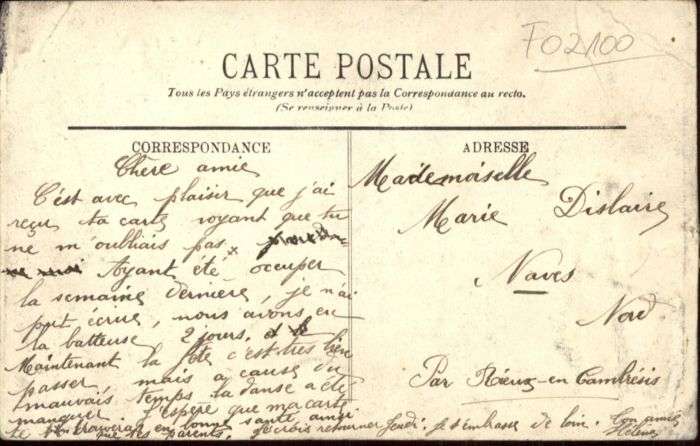 FO2100
CARTE POSTALE
Tous les Pays étrangers n'acceptent pas la Correspondance au recto.
(Se renseigner à la Poste)
CORRESPONDANCE
Chère amie
C'est avec plaisir que j'ai
reçu ta carte voyant que tu
ne m'oubliais pas
Ayant été occuper
la semaine dernière, je n'ai
put écrire, nous avons eu
la batteuse 2 jours,
Maintenant la fête c'est très bien
passer mais a cause du
mauvais temps la danse a été
manquer J'espère que ma carte
te trouvera en bonne santé ainsi
que tes parents. Je crois retourner jeudi. Je t'embrasse de loin. Ton amie
Hélène
ADRESSE
Mademoiselle
Marie Dislaire
Naves
Nord
Par Rieux-en-Cambrésis